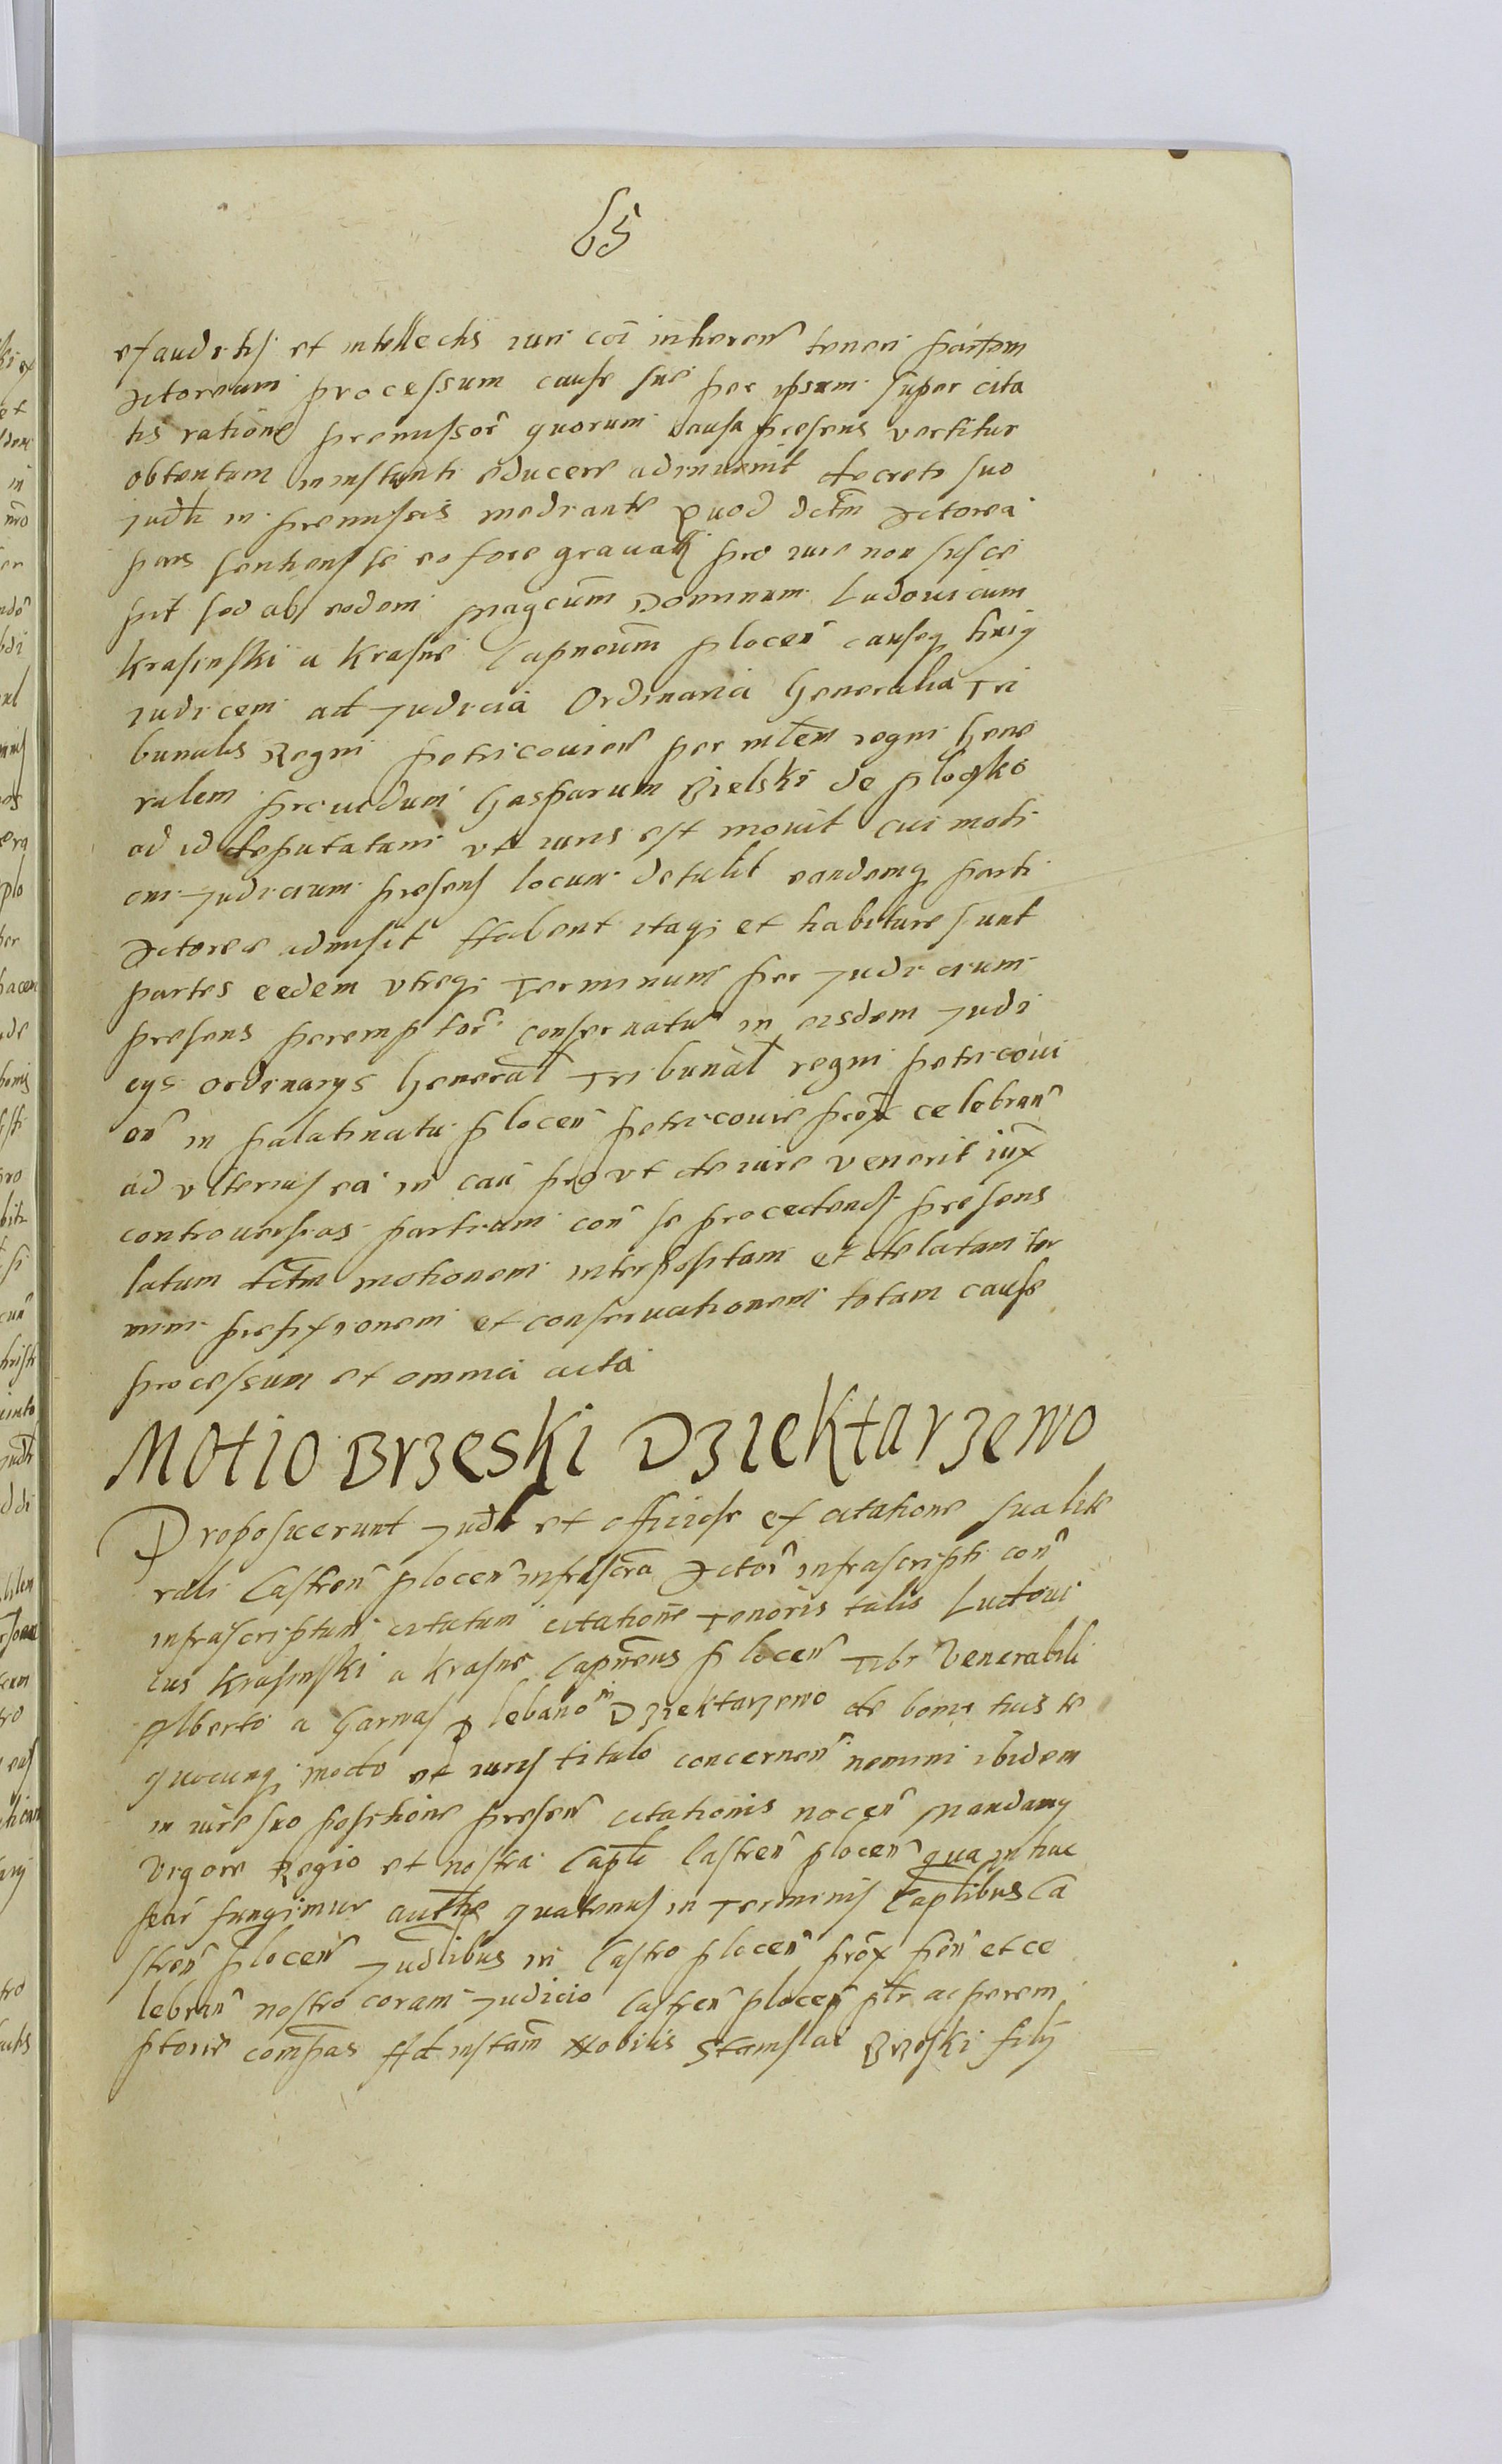 65
exauditis et intellectis iuri coi inheren teneri partem
Actoream processum cause sue per ipsum super cita
tis ratione premissor quorum causa presens vertitur
obtentum in instanti educere adinvenit decreto suo
Judli in premissis mediante Quod dctm Actorea
pars sentiens se eo fore gravatq pro iure non susce
pit sed ab eodem Magcum Dominum Ludovicum
Krasinski a Krasne Capneum plocen causeq huiq
iudicem ad Judicia Ordinaria Generalia Tri
bunalis Regni petricovien per mlem regni Gene
ralem providum Gasparum Bielski de plogsko
ad id deputatam ut iuris est movit cui moti
oni Judicium presens locum detulit eandemq parti
Actoree admisit Habent itaqi et habiture sunt
partes eedem utreqi Terminum per Judicium
presens peremptor conservatu in eisdem Judi
cys ordinarys General Tribunal regni petricovi
en in palatinatu plocen petricovie prox celebran
ad ulterius ea in cau prout de iure venerit iux
controversias partium con se procedend presens
latum dctm motionem interpositam et delatam ter
mini prefixionem et conservationem totam cause
processum et omnia acta
Motio Brzeski Dziektarzewo
Proposuerunt Judl et officiose ex citatione sua lite
rali Castren plocen infrascra Actor infrascripti con
infrascriptum citatum citatione Tenoris talis Ludovi
cus Krasinski a Krasne Capneus plocen Tibi Venerabili
Alberto a Garwas plebano in Dziektarzewo de bonis tuis te
quocunqi modo et iuris titulo concernen nemini ibidem
in iure suo positione presen citationis nocen Mandamq
Vigore Regio et nostra Captli Castren plocen qua in hac
feri fungimur authe quatenus in Terminis Captlibus Ca
stren plocen Judlibus in Castro plocen prox fien et ce
lebran nostro coram Judicio Castren plocen ptr ac perem
ptorie compas Ad instam Nobilis Stanislai Brzeski filij